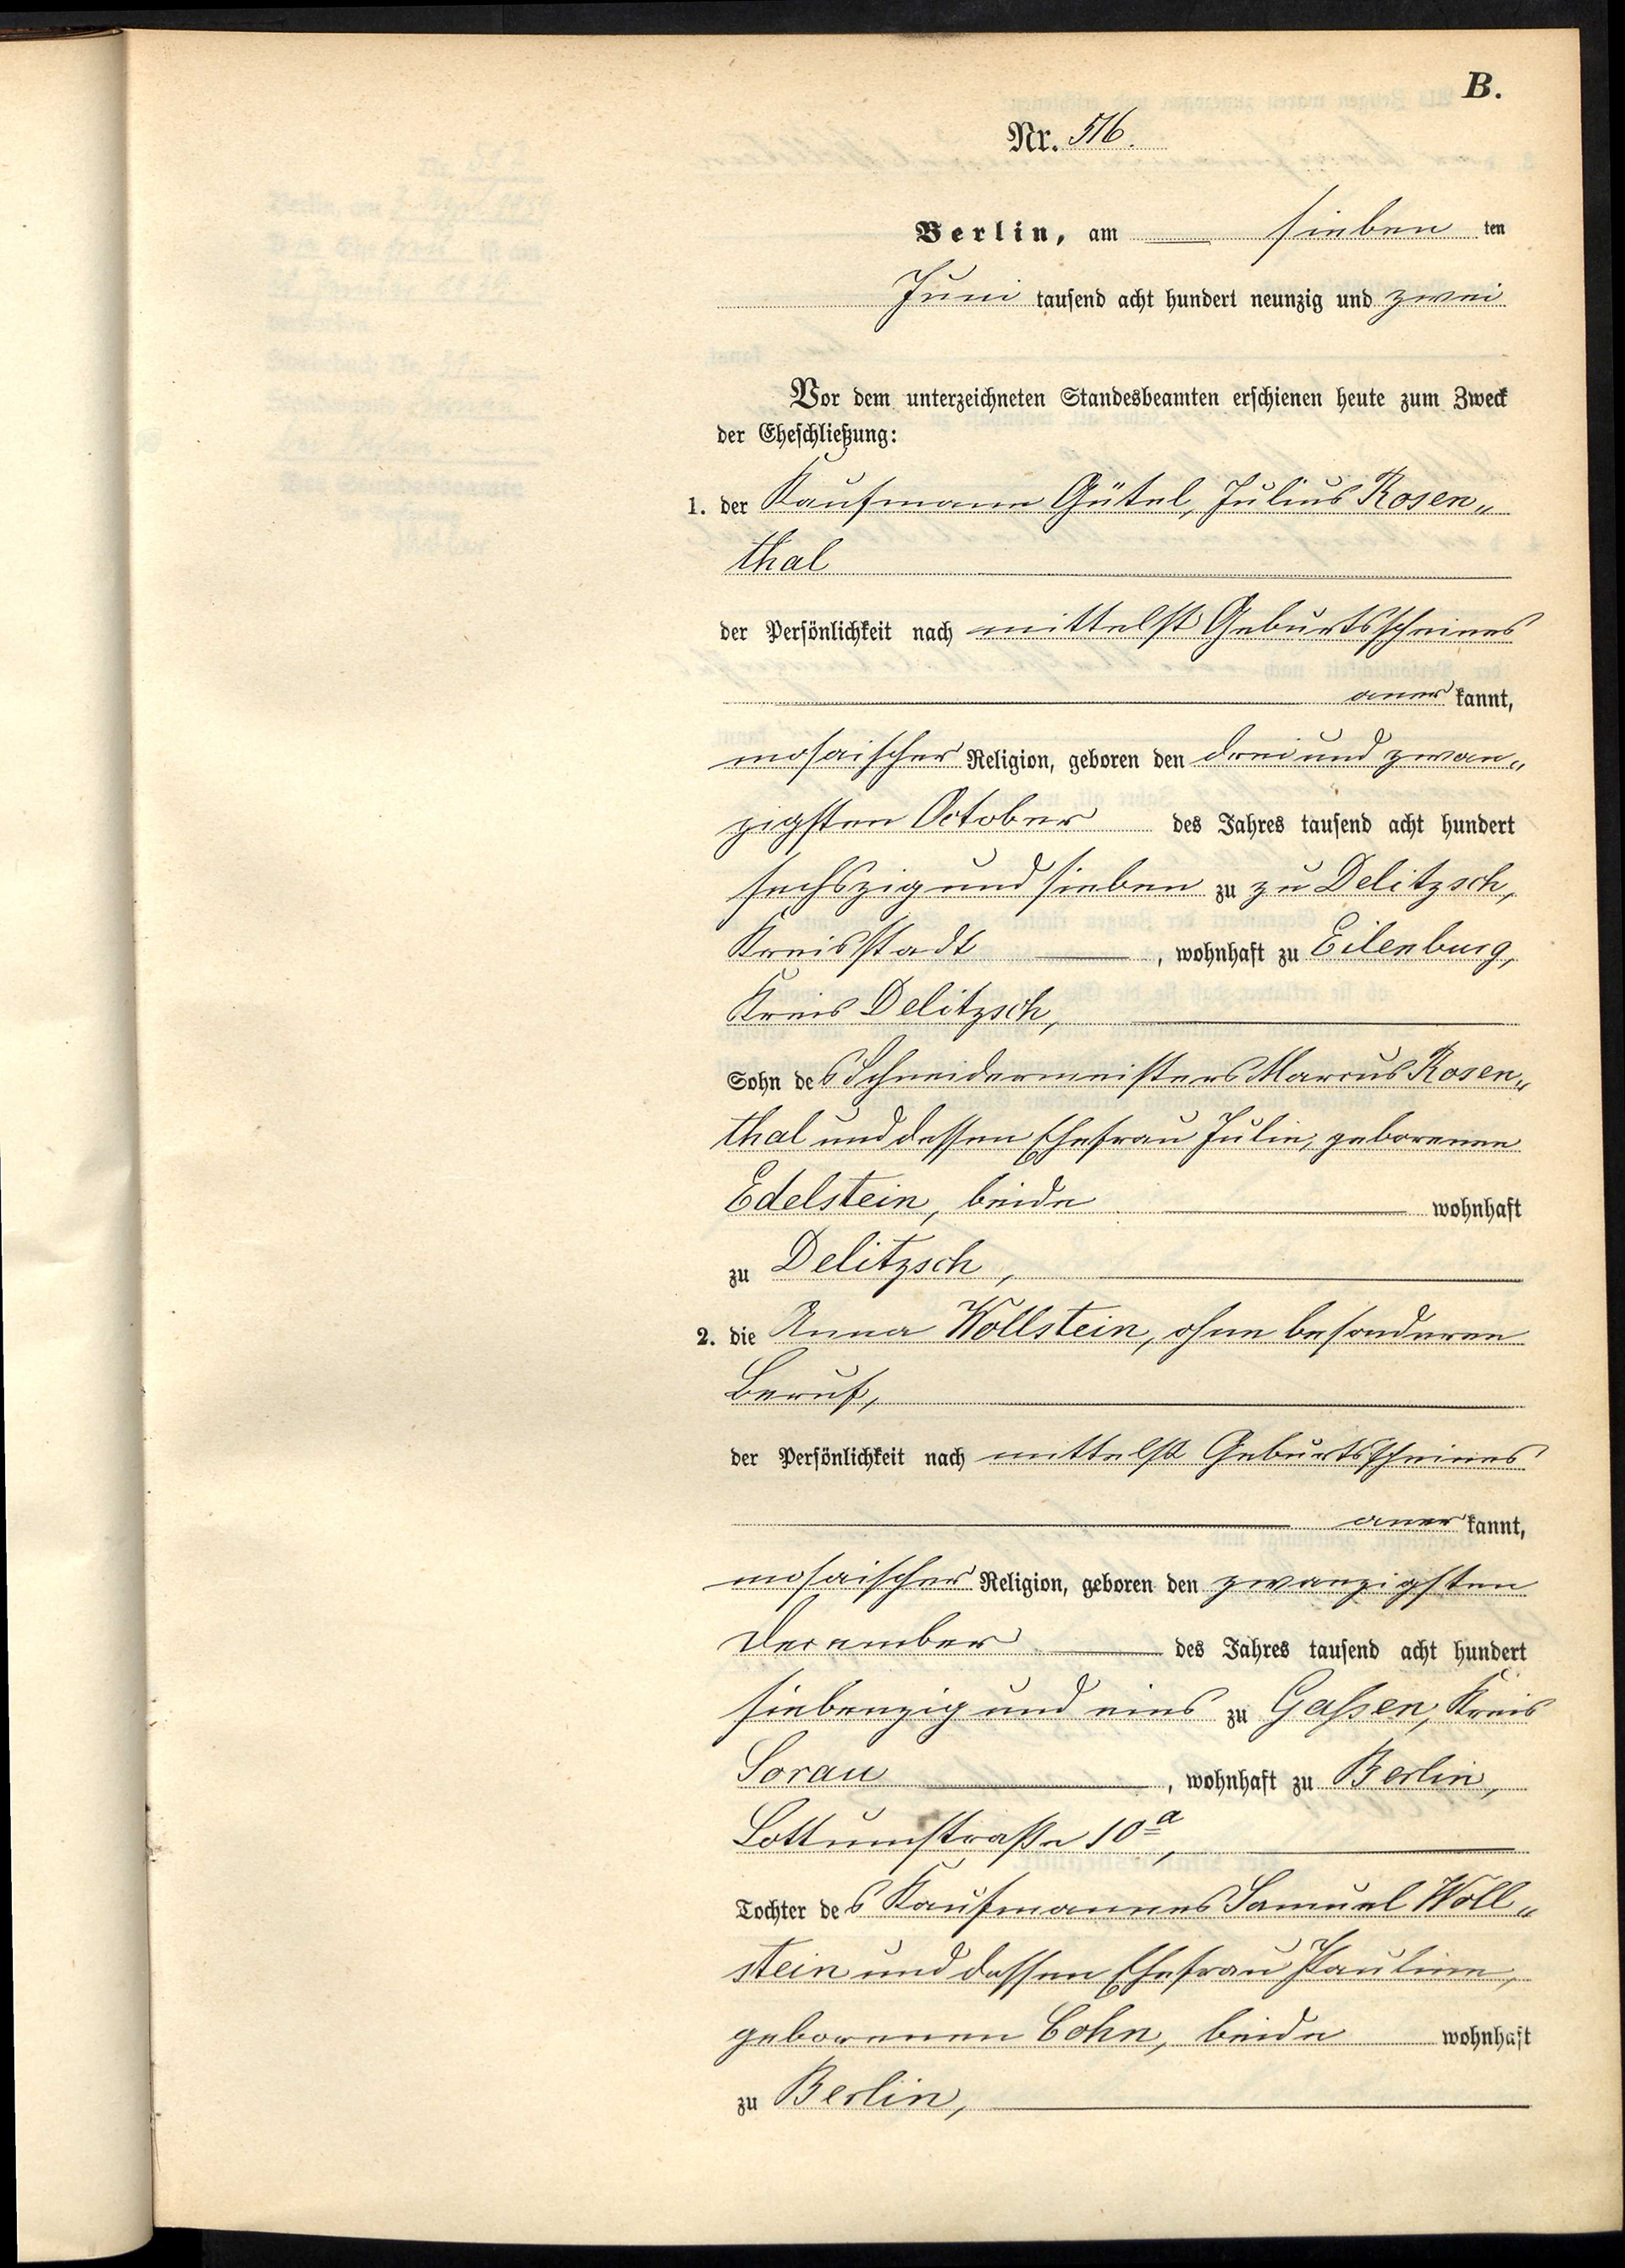 B.
Nr. 516.
Berlin, am sieben ten
Juni tausend acht hundert neunzig und zwei
Vor dem unterzeichneten Standesbeamten erschienen heute zum Zweck
der Eheschließung:
1. der Kaufmann Gütel, Julius Rosen„
thal
der Persönlichkeit nach mittelst Geburtsscheines
aner kannt,
mosaischer Religion, geboren den drei und zwan„
zigsten October des Jahres tausend acht hundert
sechszig und sieben zu zu Delitzsch,
Kreisstadt, wohnhaft zu Eilenburg,
Kreis Delitzsch,
Sohn des Schneidermeisters Marcus Rosen„
thal und dessen Ehefrau Julie, geborenen
Edelstein, beide wohnhaft
zu Delitzsch,
2. die Anna Wollstein, ohne besonderen
Beruf,
der Persönlichkeit nach mittelst Geburtsscheines
aner kannt,
mosaischer Religion, geboren den zwanzigsten
December des Jahres tausend acht hundert
siebenzig und eins zu Gaßen, Kreis
Sorau, wohnhaft zu Berlin,
Lottumstraße 10a,
Tochter des Kaufmannes Samuel Woll„
stein und dessen Ehefrau Pauline,
geborenen Cohn, beide wohnhaft
zu Berlin,